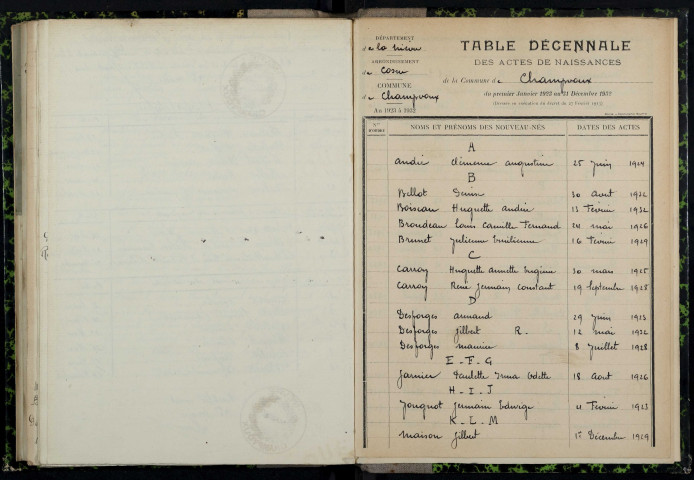 DÉPARTEMENT
de la Nièvre
ARRONDISSEMENT
de Cosne
COMMUNE
de Champvoux
An 1923 à 1932
TABLE DÉCENNALE
DES ACTES DE NAISSANCES
de la Commune de Champvoux
du premier Janvier 1923 au 31 Décembre 1932
NOMS ET PRÉNOMS DES NOUVEAU-NÉS DATES DES ACTES
A
André Clémence Augustine 25 Juin 1924
B
Bellot Denise 30 Aout 1932
Boiseau Huguette Andrée 13 Février 1932
Broudeau Louis Camille Fernand 24 mai 1926
Brunet Julienne Emilienne 16 Février 1929
C
Carroy Huguette Annette Eugénie 30 mars 1925
Carroy René Germain Constant 19 Septembre 1928
D
Desforges Armand 29 Juin 1923
Desforges Gilbert R. 12 mai 1932
Desforges Maurice 8 Juillet 1928
E - F - G
Garnier Paulette Irma Odette 18 Aout 1926
H - I - J
Jouguot Germain Edwige 4 Février 1923
K - L - M
Maison Gilbert 1er Décembre 1929